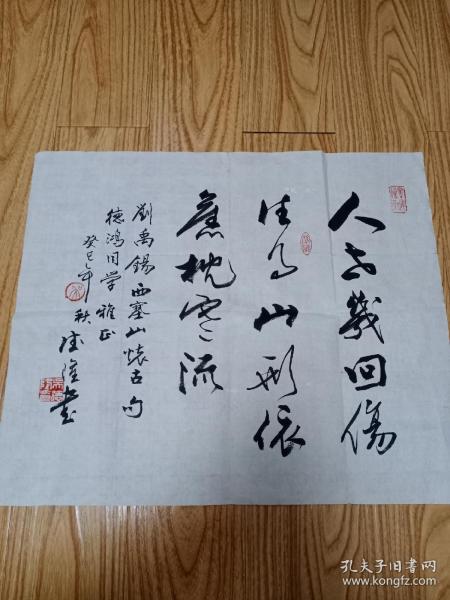 人世幾回傷
往事山形依
舊枕寒流
劉禹錫西塞山懷古句
德鴻同学雅正
癸巳年秋
書
孔夫子旧书网
www.kongfz.com